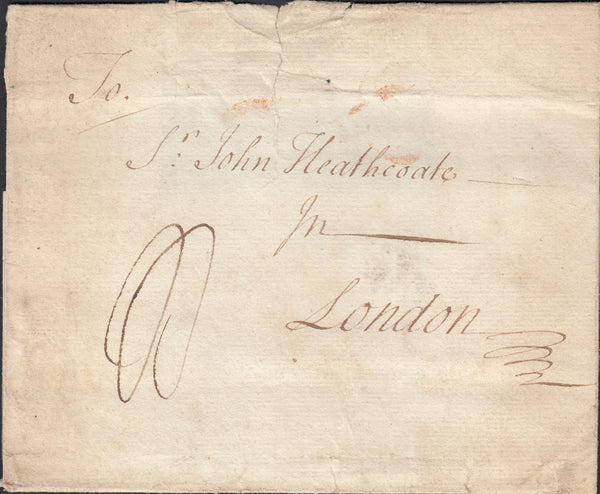 To.
Sr. John Heathcoate
In
London